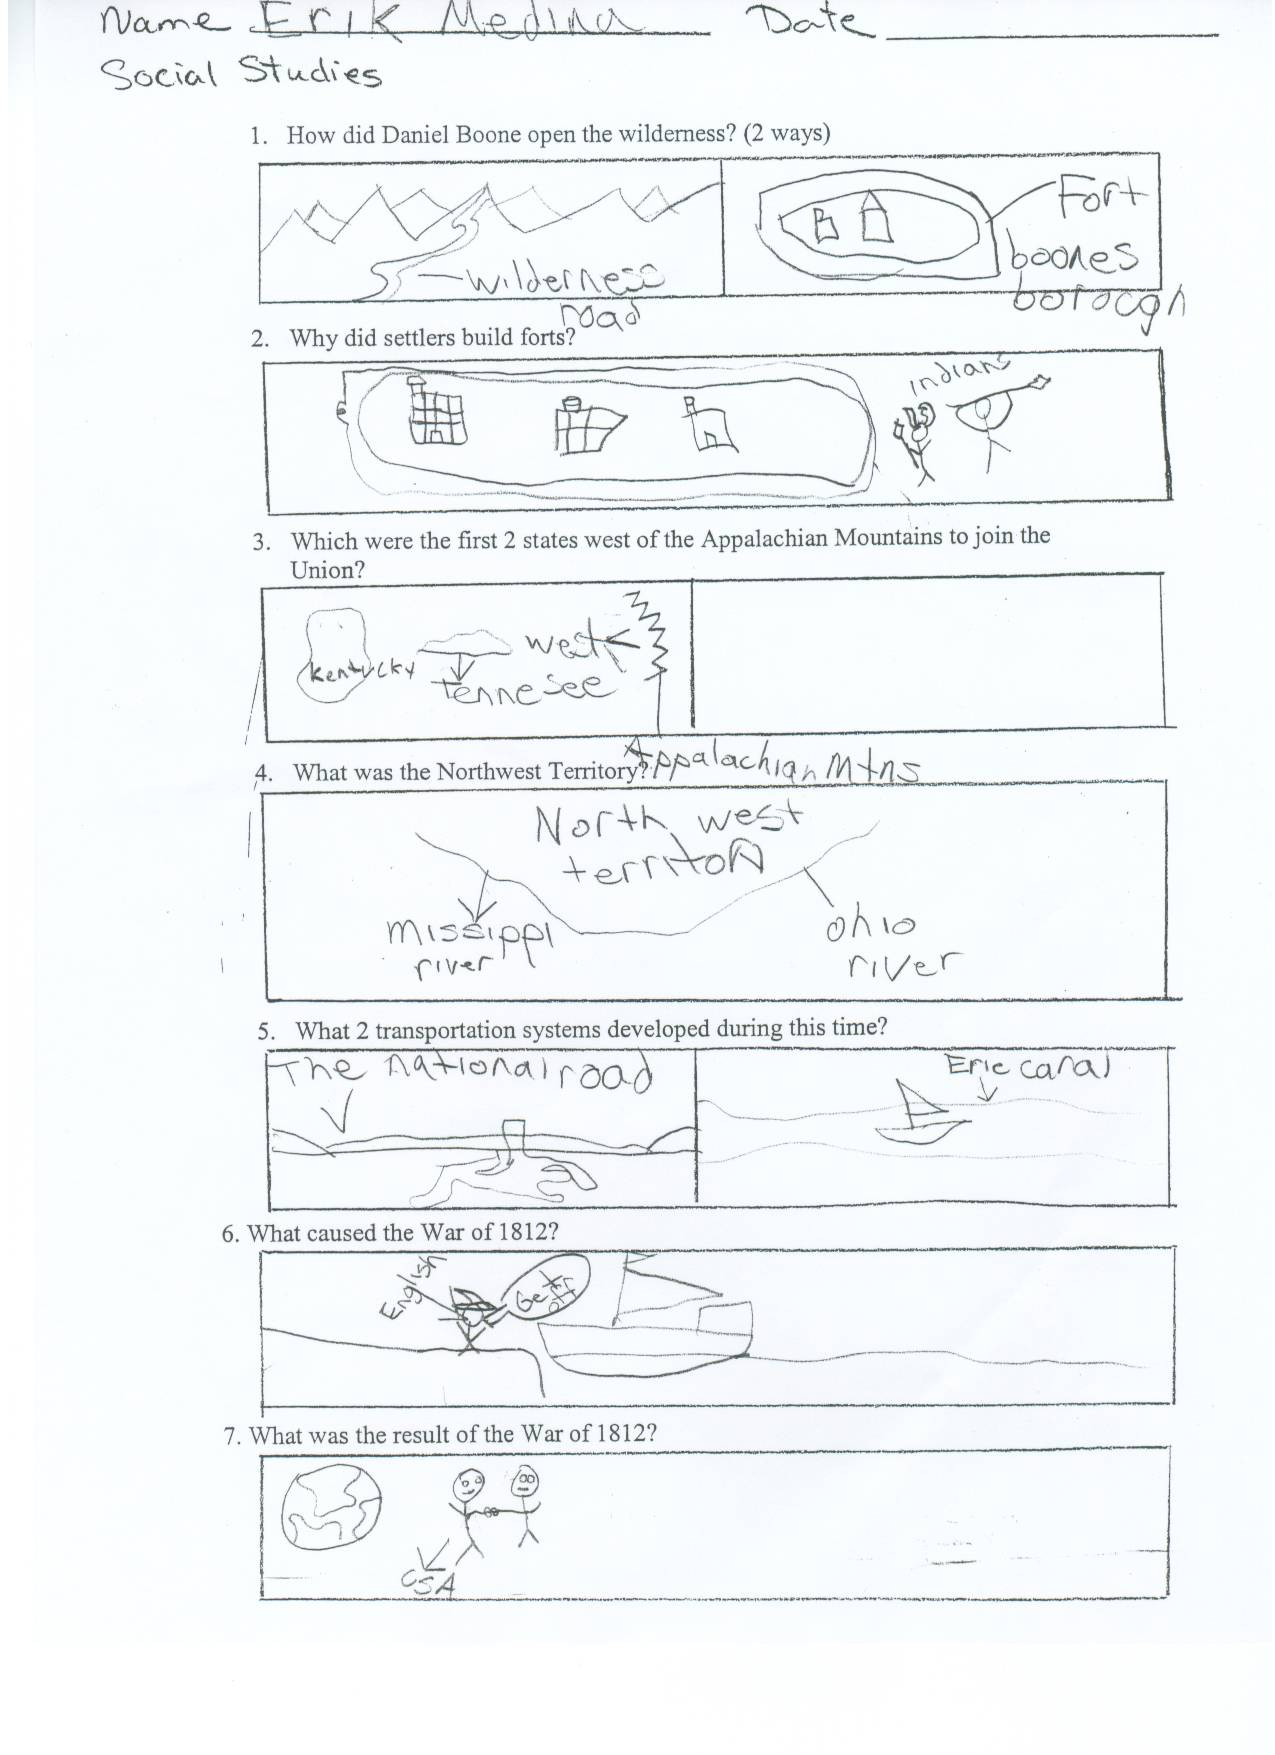 Name Erik Medina Date
Social Studies
1. How did Daniel Boone open the wilderness? (2 ways)
wilderness
road
Fort
boones
borocgh
2. Why did settlers build forts?
indians
3. Which were the first 2 states west of the Appalachian Mountains to join the
Union?
kentucky
west
tennesee
Appalachian Mtns
4. What was the Northwest Territory?
North west
territory
missippi
river
ohio
river
5. What 2 transportation systems developed during this time?
The national road
Erie canal
6. What caused the War of 1812?
English
Get
off
7. What was the result of the War of 1812?